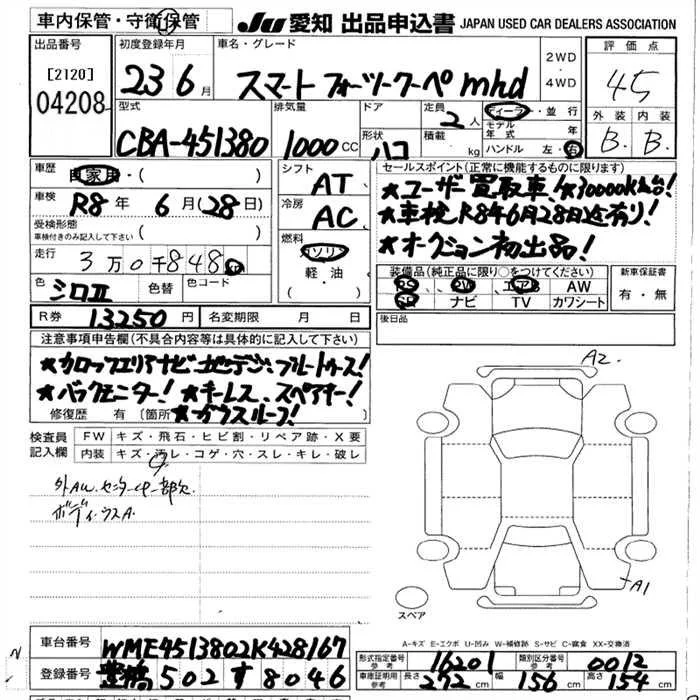 車内保管・守衛保管
JU 愛知 出品申込書 JAPAN USED CAR DEALERS ASSOCIATION
出品番号
[2120]
04208
初度登録年月
23 6月
車名・グレード
スマート フォーツークーペ mhd
2WD
4WD
評価点
4.5
型式
CBA-451380
排気量
1000cc
ドア
形状
ハコ
定員
2人
積載
kg
ディーラー・並行
モデル年式 年
ハンドル 左・右
外装 内装
B. B.
車歴 自家用 ( )
車検 R8年 6月(28日)
受検形態
車検付きのみ記入して下さい ( )
走行 3万0千848km
色 シロII 色替 色コード
R券 13250円 名変期限 月 日
シフト AT
冷房 AC
燃料 ガソリン
軽・油
( ・ )
セールスポイント(正常に機能するものに限ります)
★ユーザー買取車!★30000K台!
★車検R8年6月28日迄有り!
★オークション初出品!
装備品(純正品に限り○をつけてください)
PS、PW、エアB AW
SR ナビ TV カワシート
新車保証書
有・無
後日品
注意事項申告欄(不具合内容等は具体的に記入して下さい)
★カロッツェリアナビ・地デジ・ブルートゥース!
★バックモニター! ★キーレス、スペアキー!
★ガラスルーフ!
修復歴 有 (箇所
検査員記入欄
FW キズ・飛石・ヒビ割・リペア跡・X要
内装 キズ・汚レ・コゲ・穴・スレ・キレ・破レ
外AW.センターC中一部欠
ボディウスA.
A2
A1
スペア
A-キズ E-エクボ U-凹み W-補修跡 S-サビ C-腐食 XX-交換済
車台番号 WME4513802K428167
登録番号 豊橋 502 す 8046
形式指定番号 参考 16201 類別区分番号 参考 0012
車庫証明用 参考 長さ 272cm 幅 156cm 高さ 154cm